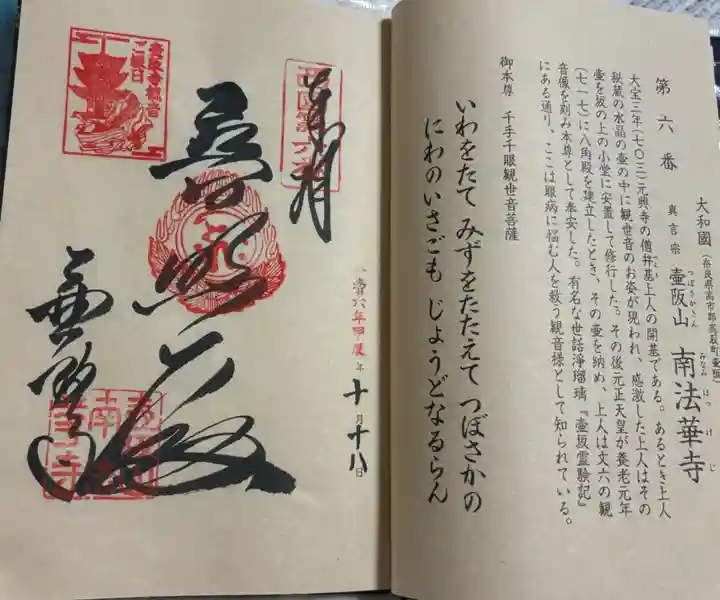 第六番
大和國（奈良県高市郡高取町壷阪）
真言宗 壷阪山 南法華寺
つぼうかさん みなみほっけじ
大宝三年（七〇三）元興寺の僧弁基上人の開基である。あるとき上人
秘蔵の水晶の壷の中に観世音のお姿が現われ、感激した上人はその
壷を坂の上の小堂に安置して修行した。その後元正天皇が養老元年
（七一七）に八角殿を建立したとき、その壷を納め、上人は丈六の観
音像を刻み本尊として奉安した。有名な世話浄瑠璃『壷坂霊験記』
にある通り、ここは眼病に悩む人を救う観音様として知られている。
御本尊 千手千眼観世音菩薩
いわをたて みずをたたえて つぼさかの
にわのいさごも じょうどなるらん
奉拝
西国第六番
普照殿
令和六年甲辰年 十月十八日
壷阪寺観音
ご縁日
南